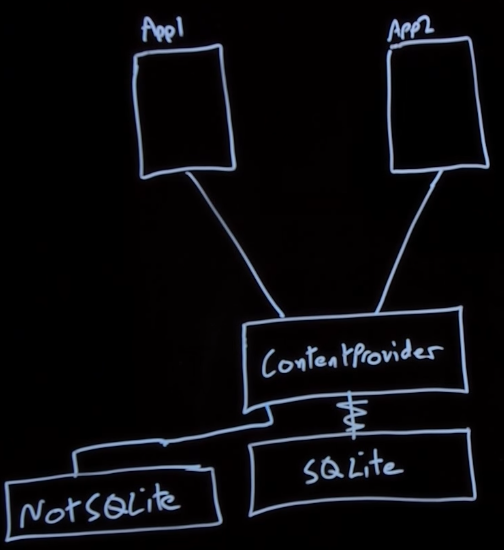 App1
App2
ContentProvider
SQLite
NotSQLite